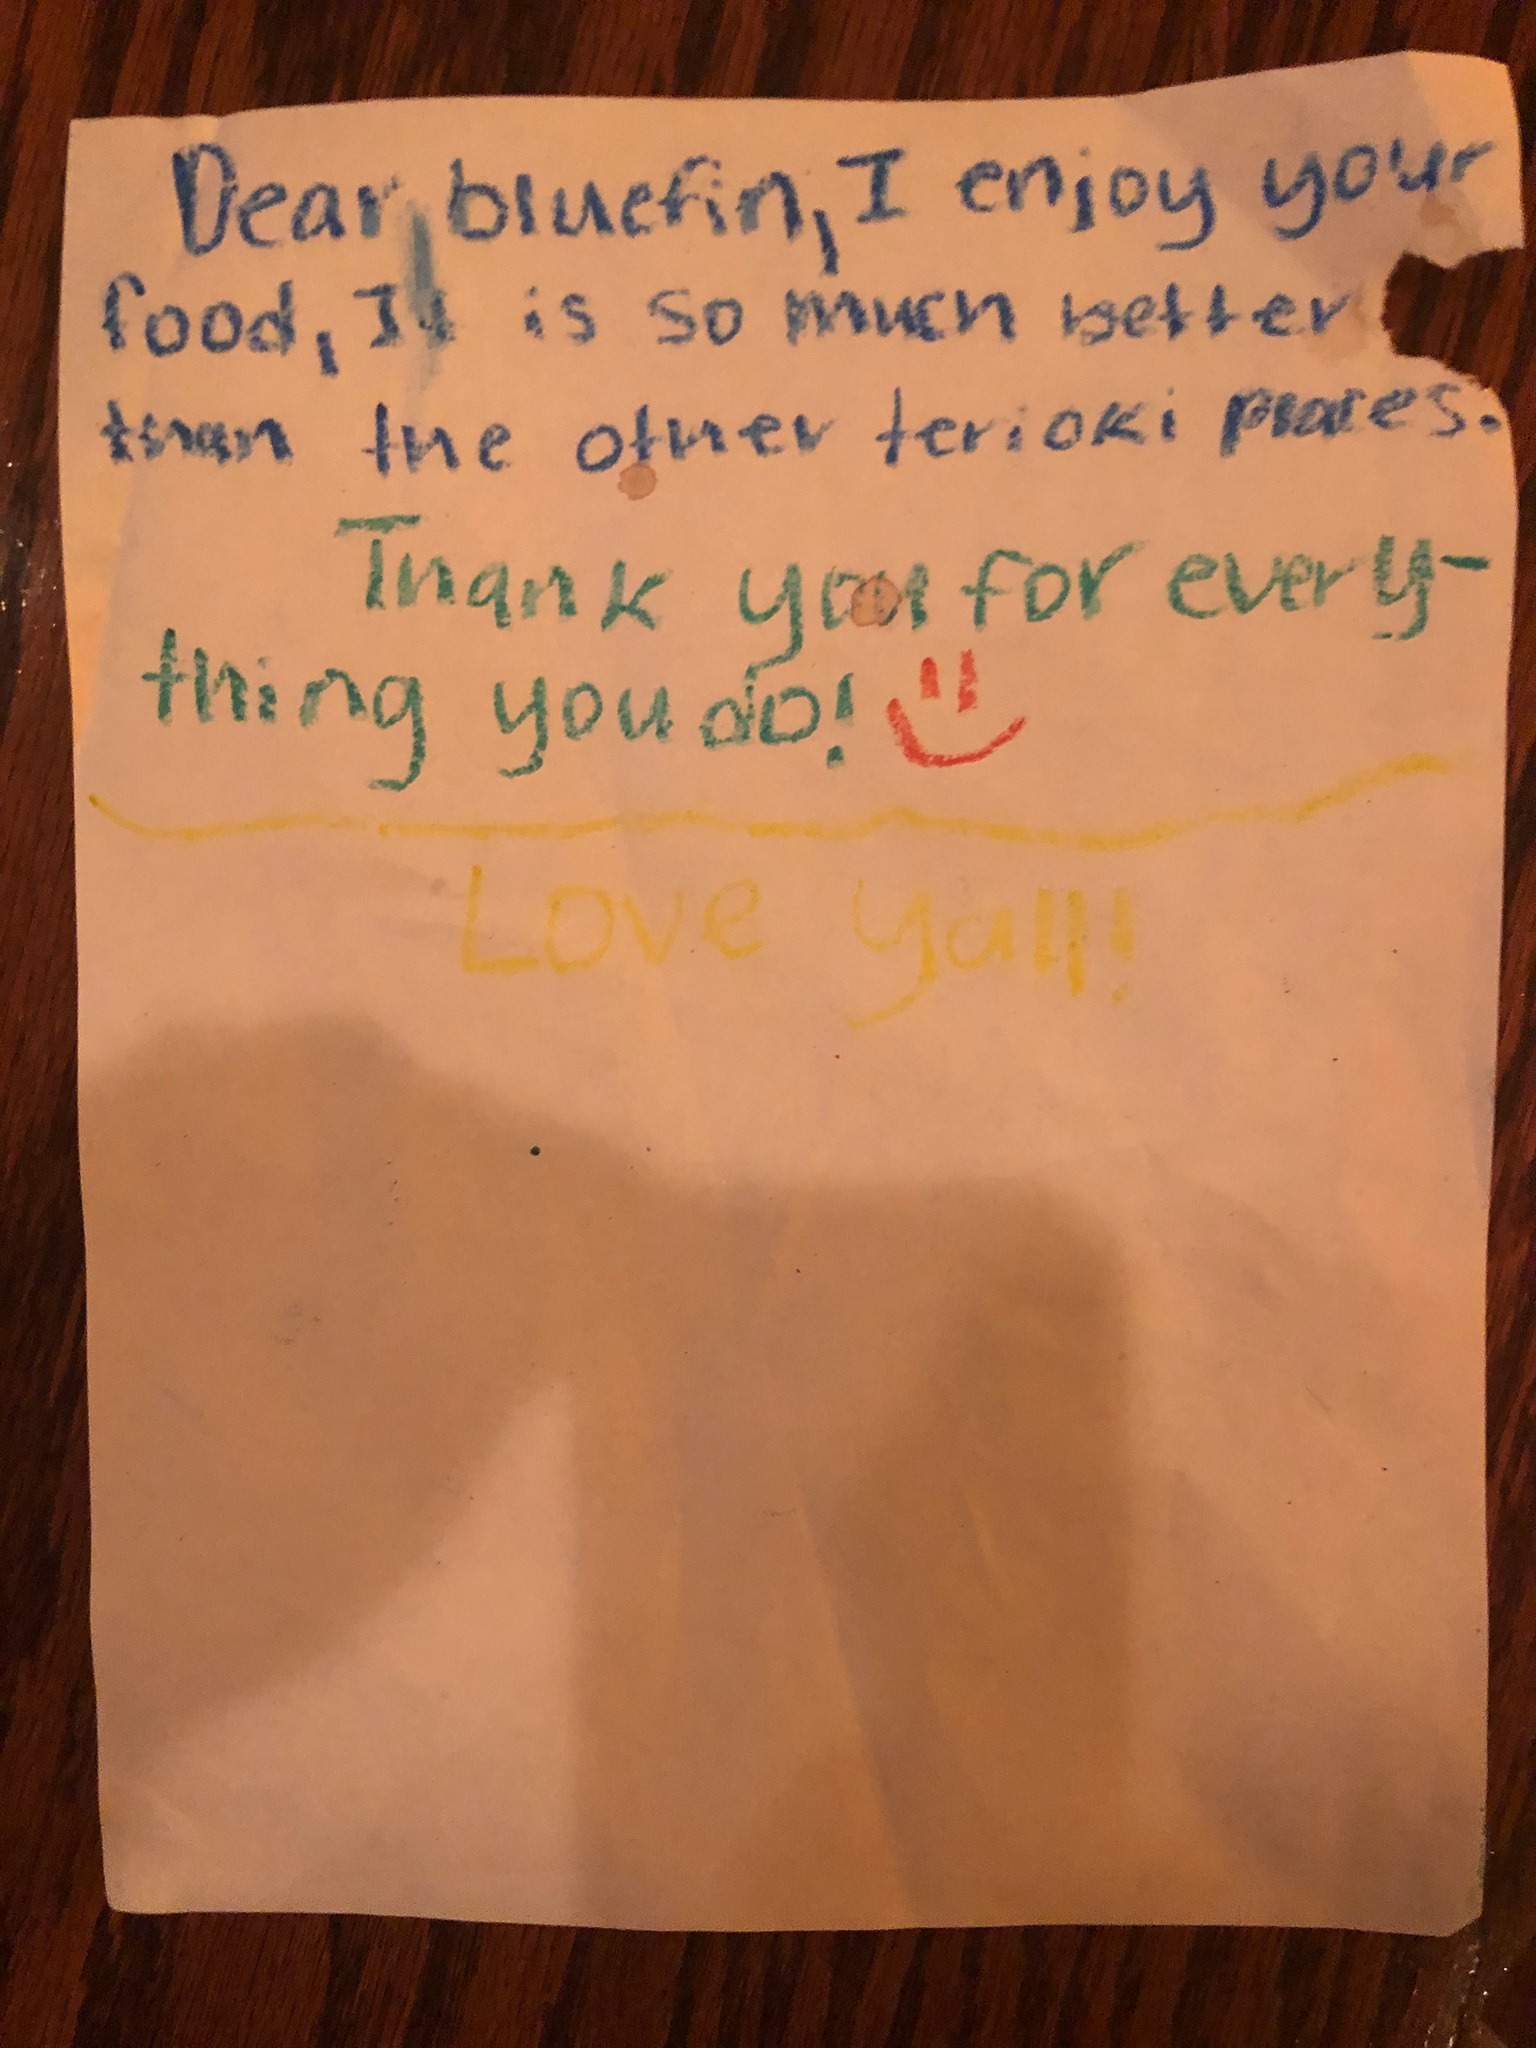 Dear, bluefin, I enjoy your
food, It is so much better
than the other terioki places.
Thank you for every-
thing you do!
Love yall!